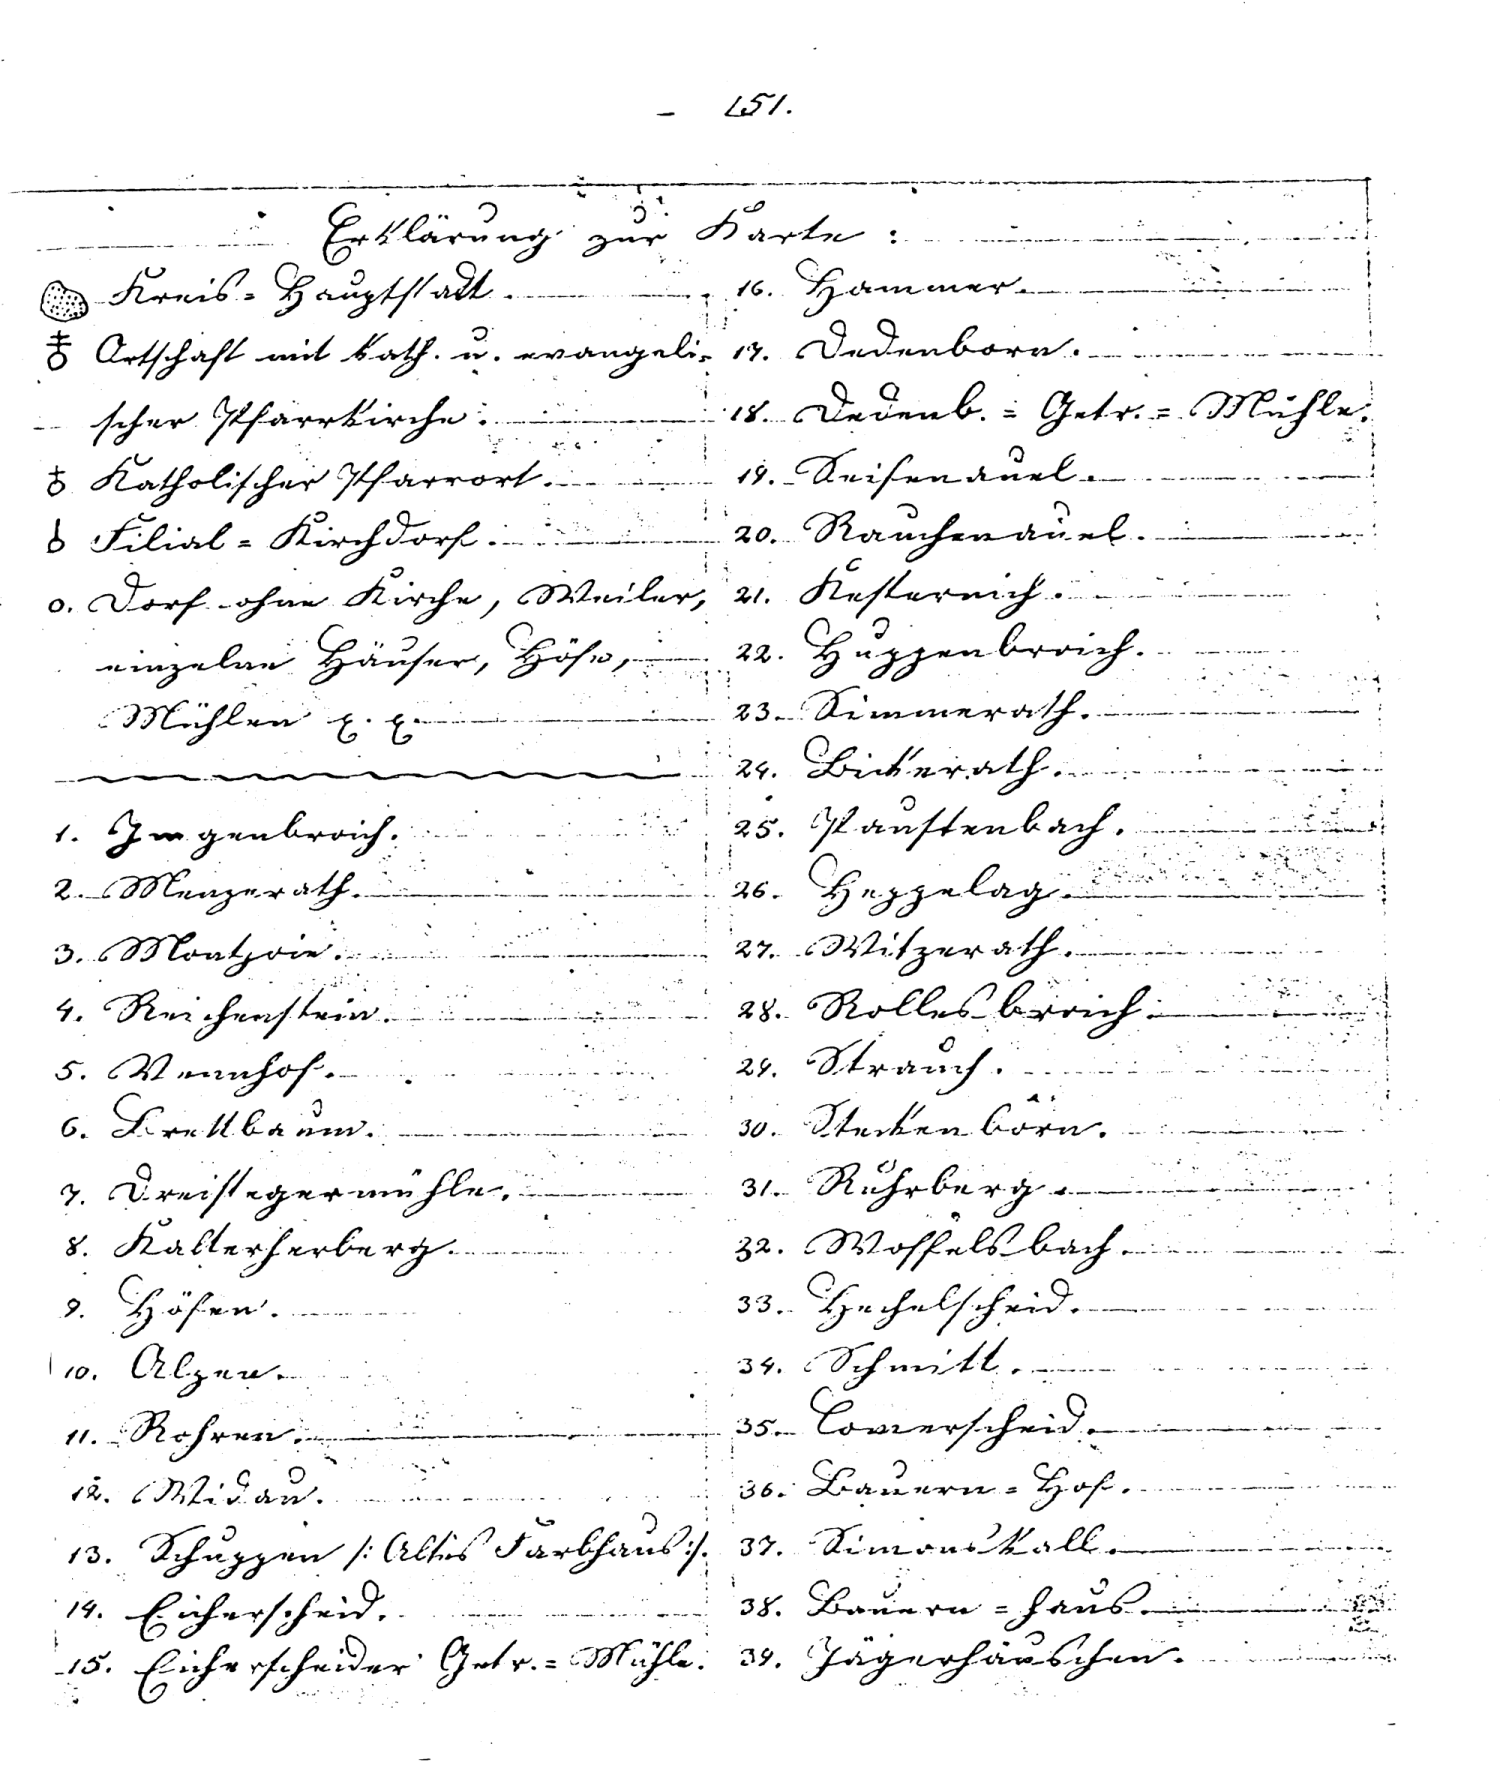 - 151.
Erklärung zur Karte:
Kreis=Hauptstadt.
Ortschaft mit kath. u. evangeli-
scher Pfarrkirche.
Katholischer Pfarrort.
Filial=Kirchdorf.
o. Dorf ohne Kirche, Weiler,
einzelne Häuser, Höfe,
Mühlen
1. Imgenbroich.
2. Menzerath.
3. Montjoie.
4. Reichenstein.
5. Vennhof.
6. Brettbaum.
7. Dreistegermühle.
8. Kalterherberg.
9. Höfen.
10. Alzen.
11. Rohren.
12. Widau.
13. Schuppen /: Altes Farbhaus :/.
14. Eicherscheid.
15. Eicherscheider Getr.=Mühle.
16. Hammer.
17. Dedenborn.
18. Dedenb.=Getr.=Mühle.
19. Seifenauel.
20. Rauchenauel.
21. Kesternich.
22. Huppenbroich.
23. Simmerath.
24. Bickerath.
25. Paustenbach.
26. Heppelag.
27. Witzerath.
28. Rollesbroich.
29. Strauch.
30. Steckenborn.
31. Ruhrberg.
32. Woffelsbach.
33. Hechelscheid.
34. Schmitt.
35. Comerscheid.
36. Bauern=Hof.
37. Simonskall.
38. Bauern=haus.
39. Jägerhäuschen.